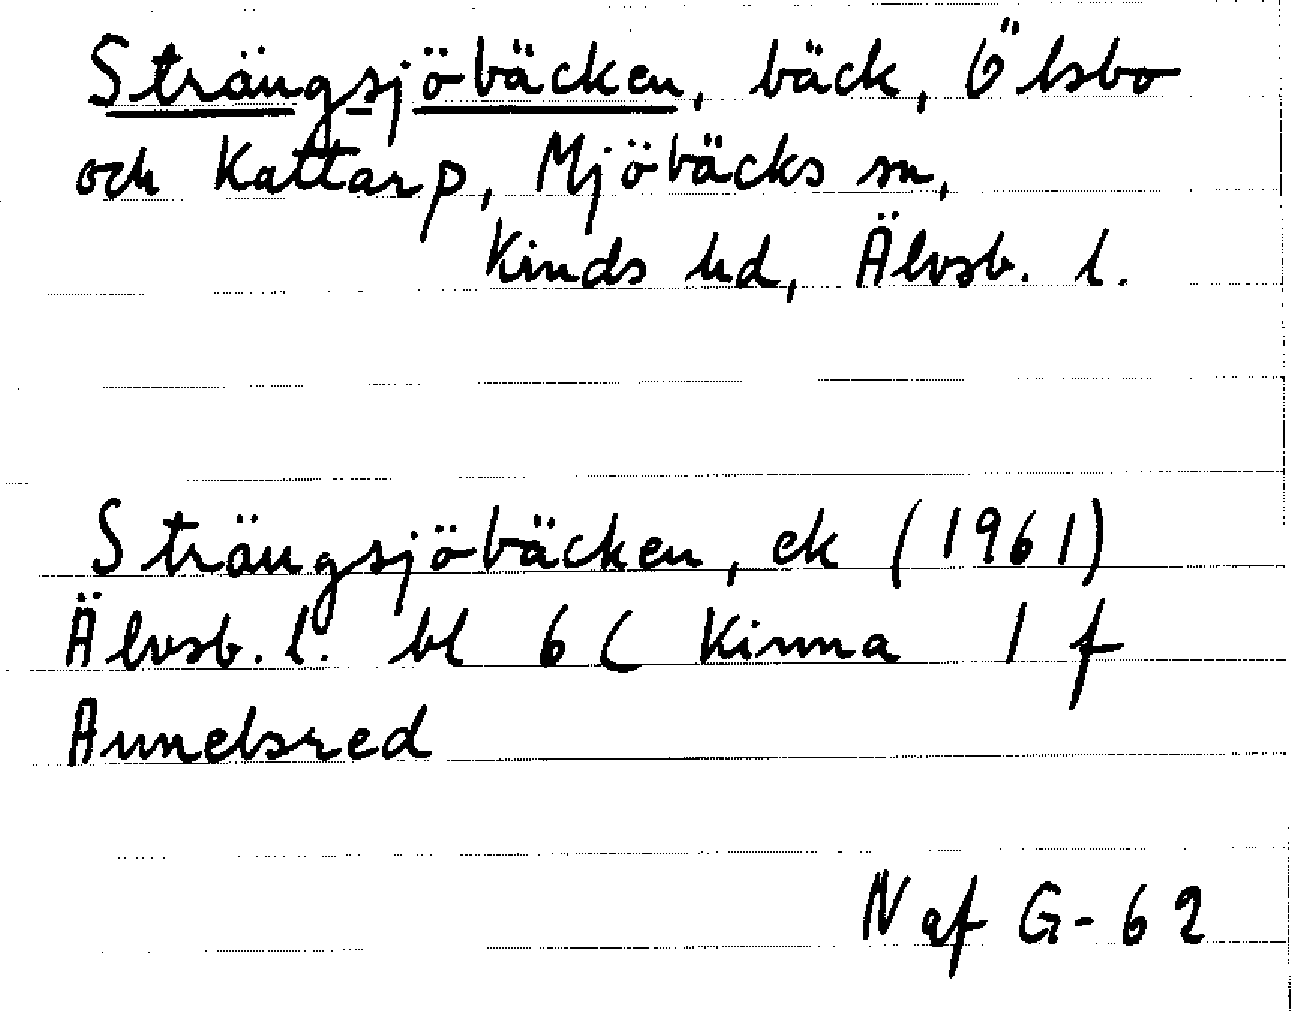 Strängsjöbäcken, bäck, Ölsbo
och Kattarp, Mjöbäcks sn,
Kinds hd, Älvsb. l.
Strängsjöbäcken, ek (1961)
Älvsb. l. bl 6 C Kinna 1 f
Annelsred
N af G-62